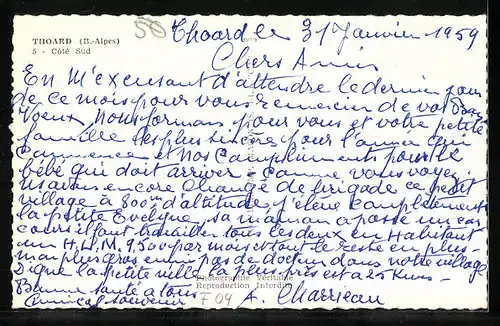 THOARD (B.-Alpes)
5 - Côté Sud
50
Thoard le 31 Janvier 1959
Chers Amis
En M'excusant d'attendre le dernier jour
de ce mois pour vous remercier de vos Bons
Voeux, Nous formons pour vous et votre petite
famille les plus sincère pour l'année qui
Commence et Nos Compliments pour le
bébé qui doit arriver Comme vous voyez
avons encore Changé de brigade ce petit
village à 800m d'altitude, j'élève complètement
la petite Evelyne, sa maman a passé un con
cours travailler tous les deux en Habitant
un H.L.M. 9.500 par mois et tout le reste en plus
plus gros ennuis pas de docteur dans notre village
Digne la petite ville la plus près est à 25 Kms
Bonne santé à tous
Amical souvenir
A. Charrieau
Photographie Véritable
Reproduction Interdite
F 04